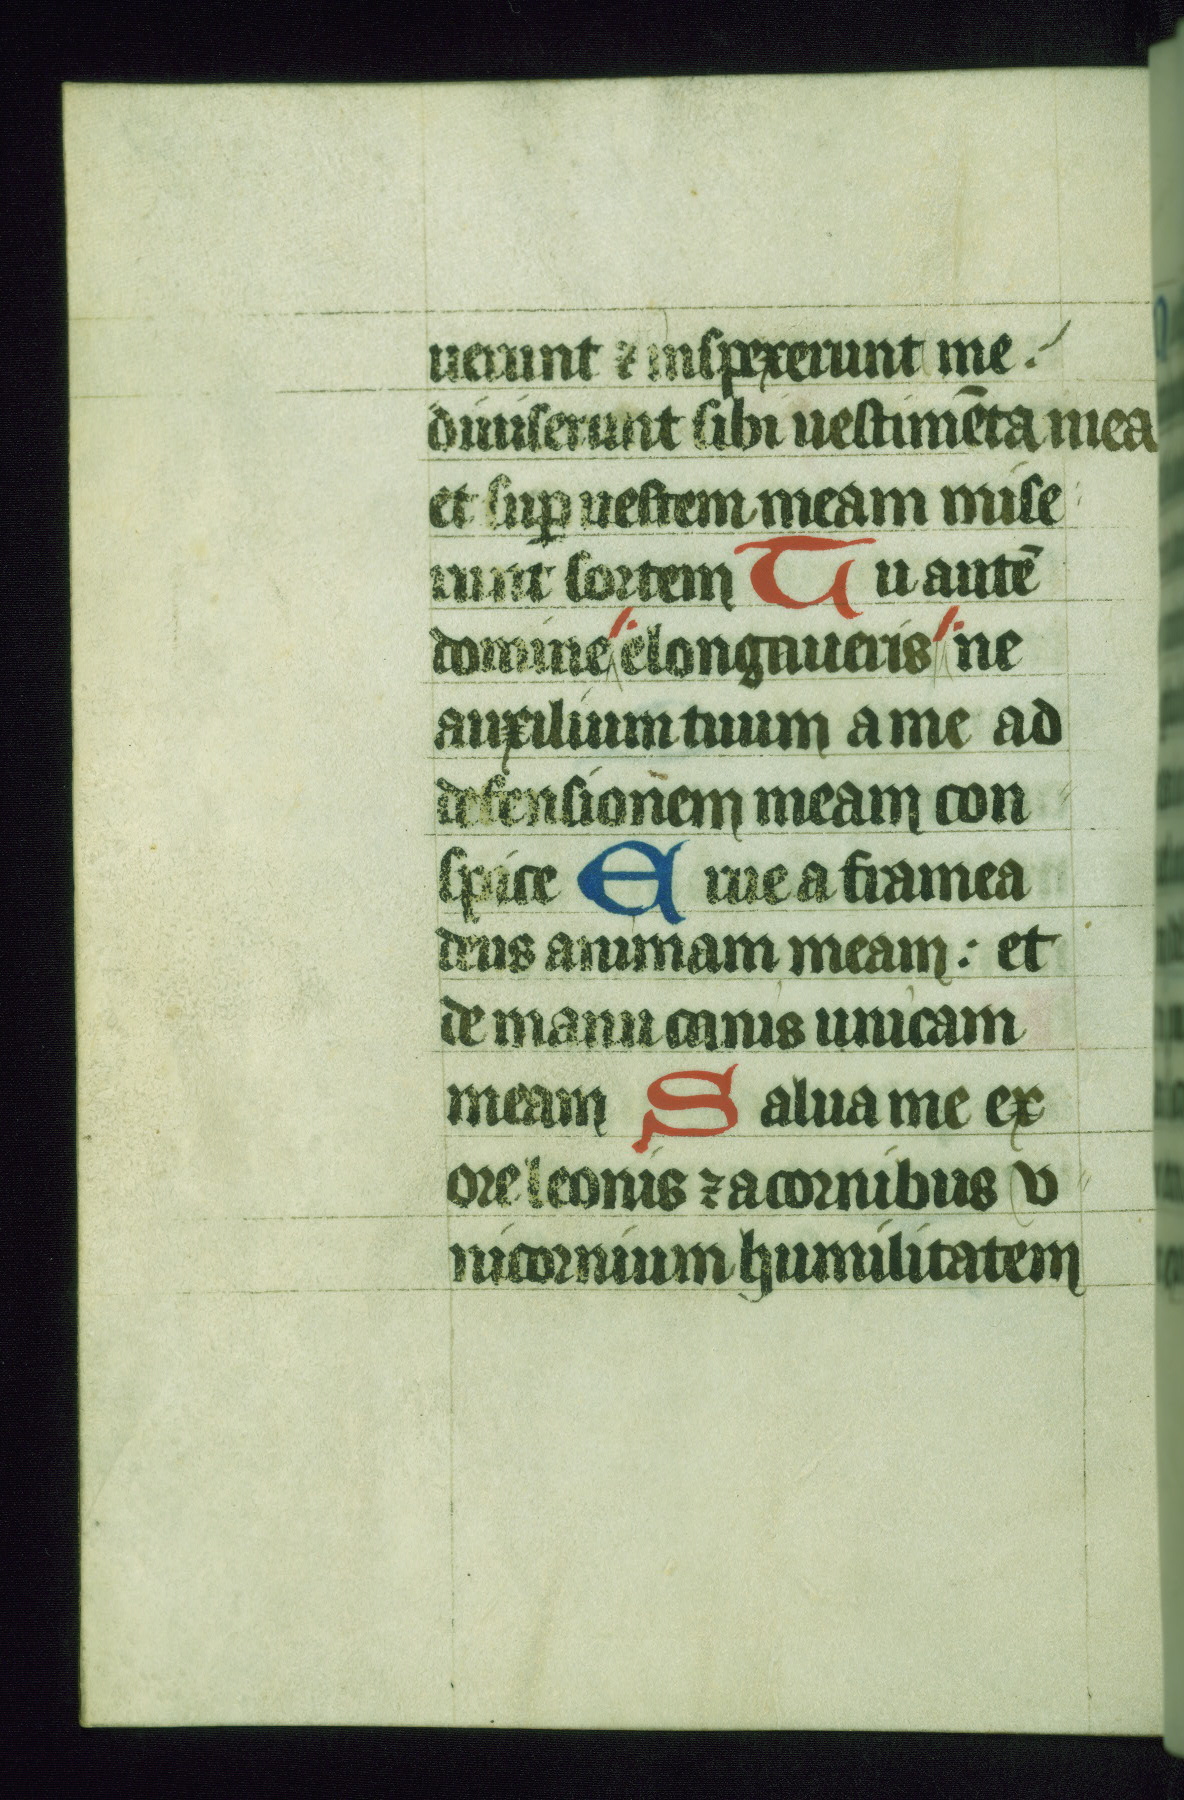 uerunt ⁊ inspexerunt me .
diuiserunt sibi uestimēta mea
et sup uestem meam mise
runt sortem Tu autē
domine elongaueris ne
auxilium tuum a me ad
defensionem meam con
spice Erue a framea
deus animam meam : et
de manu canis unicam
meam Salua me ex
ore leonis ⁊ a cornibus v
nicornium humilitatem